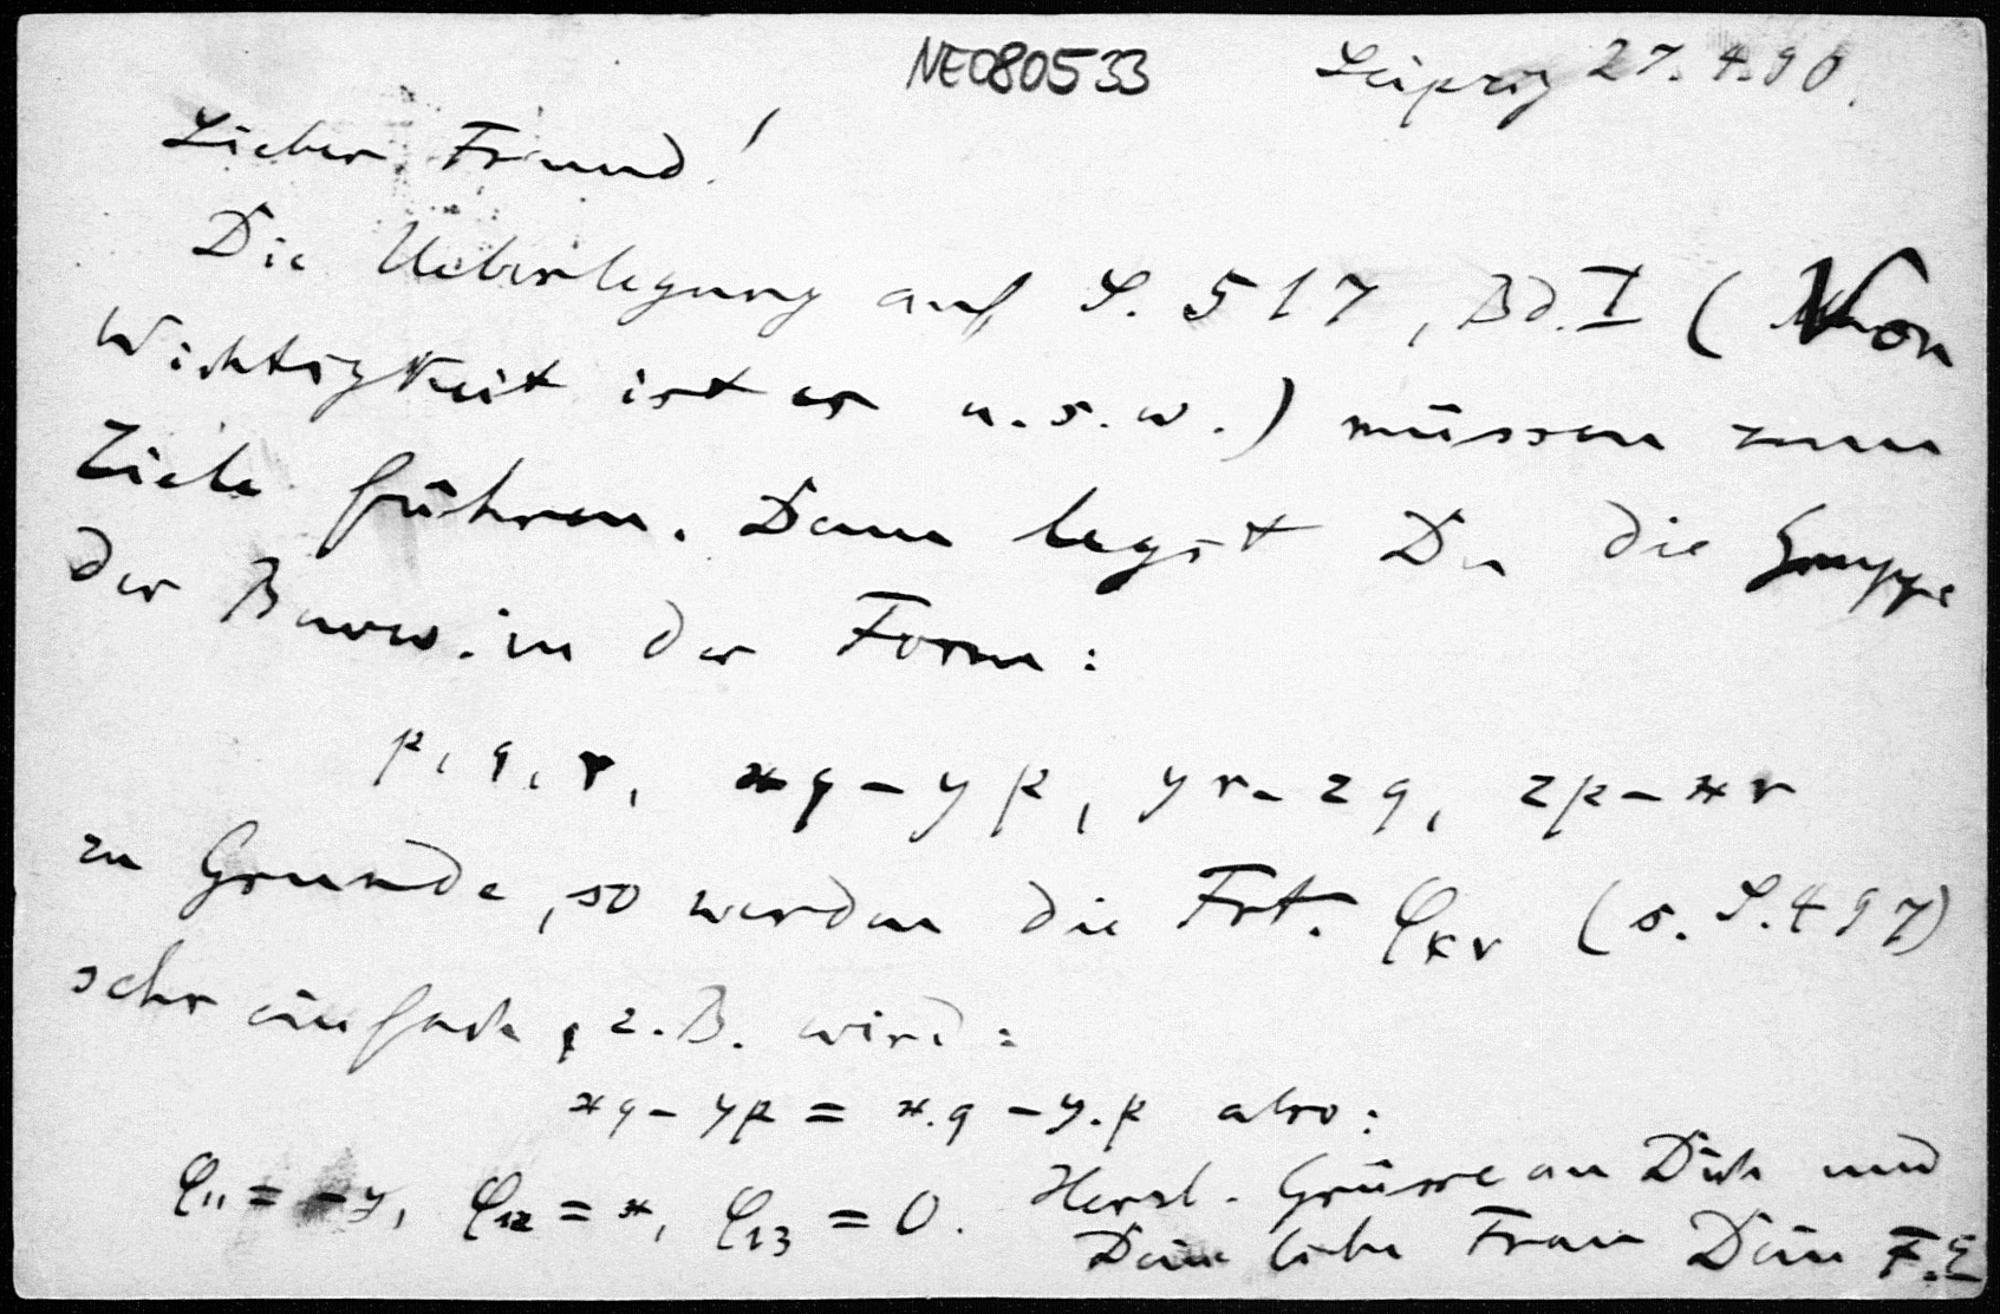 NE080533
Leipzig 27.4.90.
Lieber Freund!
Die Ueberlegung auf S. 517, Bd. I (Von
Wichtigkeit ist es u.s.w.) müssen zum
Ziele führen. Dann legst Du die Gruppe
der Beweg. in der Form:
p, q, r, xq-yp, yr-zq, zp-xr
zu Grunde, so werden die Fkt. φκν (s. S.497)
sehr einfach, z.B. wird:
xq-yp = x.q-y.p also:
φ11=-y, φ12=x, φ13=0.
Herzl. Grüsse an Dich und
Deine liebe Frau Dein F.E